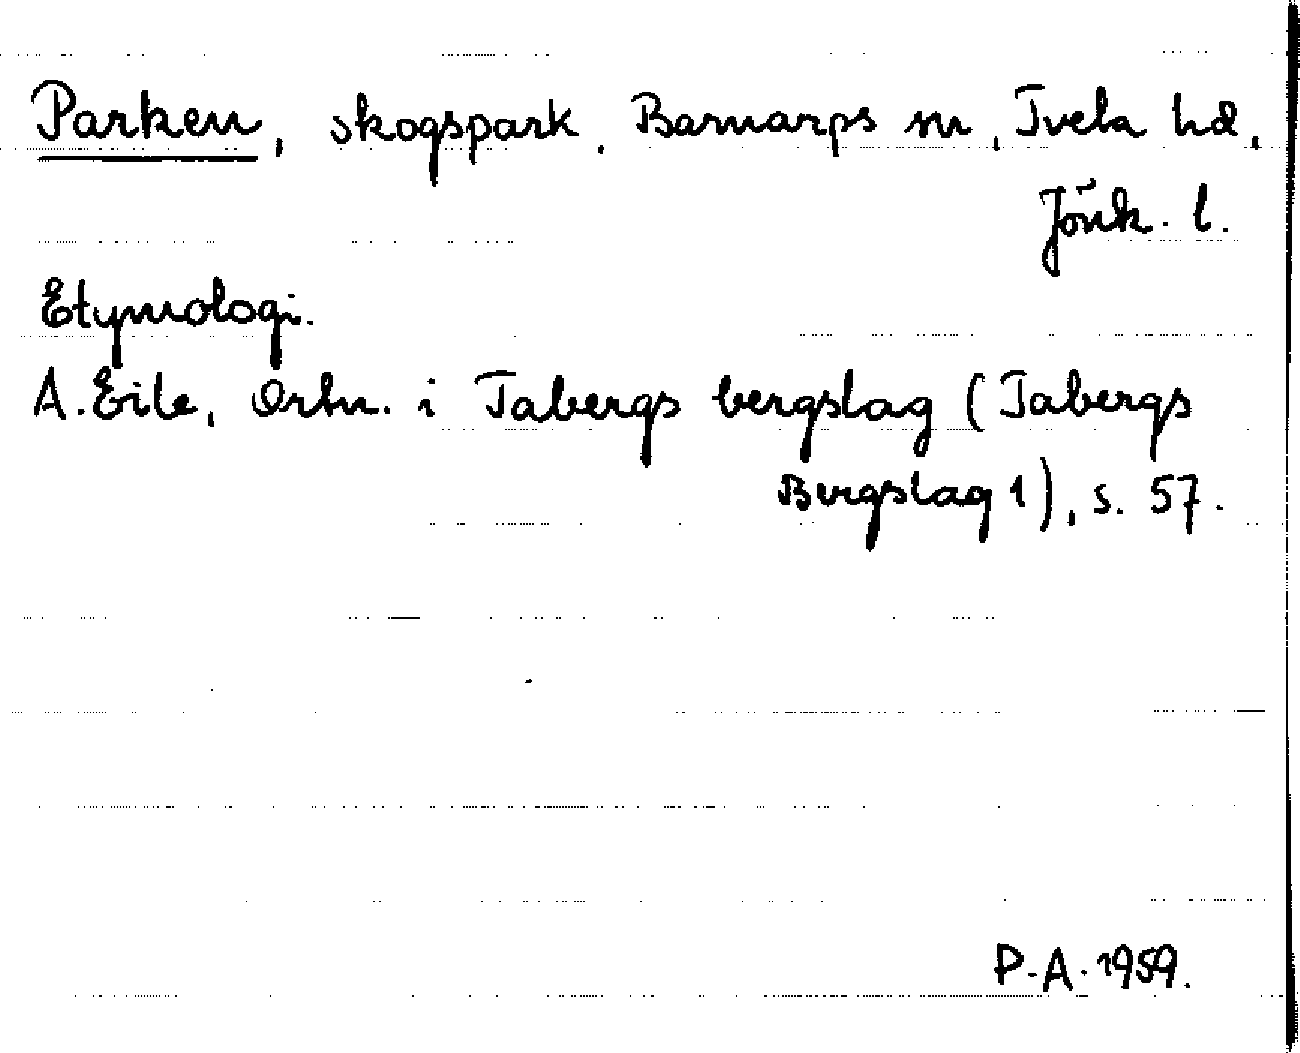 Parken, skogspark, Barnarps sn, Tveta hd,
Jönk. l.
Etymologi.
A. Eile, Ortn. i Tabergs bergslag (Tabergs
Bergslag 1), s. 57.
P.A. 1959.